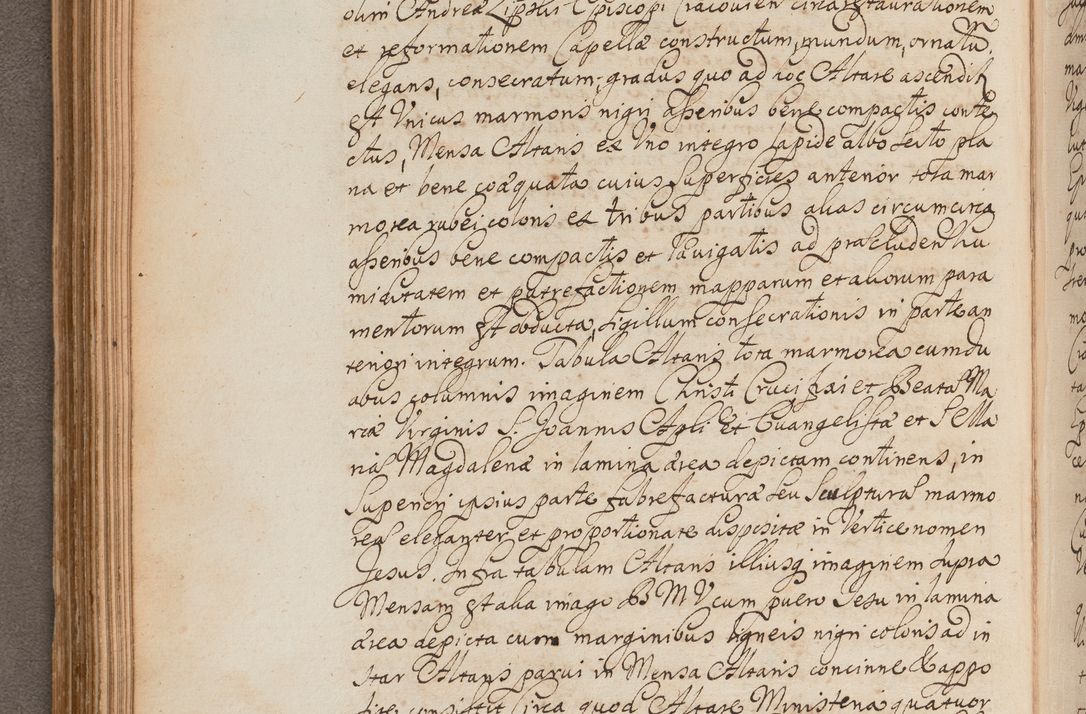 olim Andreæ Lipski Episcopi Cracovien circa restaurationem
et reformationem Capellæ constructum, mundum, ornatũ,
elegans, consecratum; gradus quo ad hoc Altare ascendit
est Vnicus marmoris nigri asseribus bene compactis conte
ctus, Mensa Altaris ex Vno integro lapide albo secto pla
na et bene coæquata cuius superficies anterior tota mar
morea rubei coloris ex tribus partibus alias circumcirca
asseribus bene compactis et lævigatis ad præcludend hu
miditatem et putrefactionem mapparum et aliorum para
mentorum est obducta, sigillum consecrationis in parte an
teriori integrum. Tabula Altaris tota marmorea cum du
abus columnis imaginem Christi Crucifixi et Beatæ Ma
riæ Virginis S. Joannis Apli Et Evangelistæ et S Ma
riæ Magdalenæ in lamina ærea depictam continens, in
superiori ipsius parte fabrefacturæ seu sculpturæ marmo
reæ eleganter et proportionate dispositæ in Vertice nomen
Jesus. Infra tabulam Altaris illiusq imaginem supra
Mensam est alia imago B M V cum puero Jesu in lamina
ærea depicta cum marginibus ligneis nigri coloris ad in
star Altaris parui in Mensa Altaris concinne & appo
site consistit Circa quod Altare Ministeria quatuor